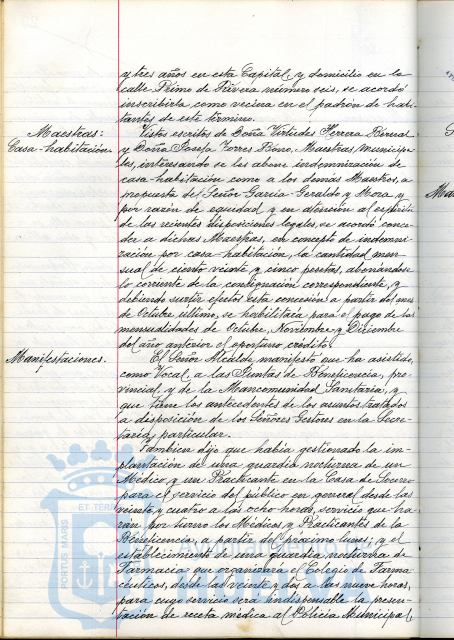 y tres años en esta Capital, y domicilio en la
calle Primo de Rivera número seis, se acordó
inscribirla como vecina en el padrón de habi-
tantes de este término.
Maestras:
Casa-habitación.
Vistos escritos de Doña Virtudes Herrera Bernal
y Doña Josefa Torres Bono, Maestras municipa-
les, interesando se les abone indemnización de
casa-habitación como a los demás Maestros, a
propuesta del Señor García-Geraldo y Mora, y
por razón de equidad y en atención al espíritu
de las recientes disposiciones legales, se acordó conce-
der a dichas Maestras, en concepto de indemni-
zación por casa-habitación, la cantidad men-
sual de ciento veinte y cinco pesetas, abonándose
lo corriente de la consignación correspondiente, y
debiendo surtir efectos esta concesión a partir del mes
de Octubre último, se habilitaría para el pago de las
mensualidades de Octubre, Noviembre y Diciembre
del año anterior el oportuno crédito.
Manifestaciones.
El Señor Alcalde manifestó que ha asistido,
como Vocal, a las Juntas de Beneficencia, pro-
vincial, y de la Mancomunidad Sanitaria, y
que tiene los antecedentes de los asuntos tratados
a disposición de los Señores Gestores en la Secre-
taría particular.
Tambien dijo que había gestionado la im-
plantación de una guardia nocturna de un
Médico y un Practicante en la Casa de Socorro
para el servicio del público en general desde las
veinte y cuatro a las ocho horas, servicio que ha-
rán por turno los Médicos y Practicantes de la
Beneficencia, a partir del próximo lunes; y el
establecimiento de una guardia nocturna de
Farmacia que organizará el Colegio de Farma-
céuticos, desde las veinte y dos a las nueve horas,
para cuyo servicio será indispensable la presen-
tación de receta médica al Policía Municipal
ET TERRA
PORTUS MARIS